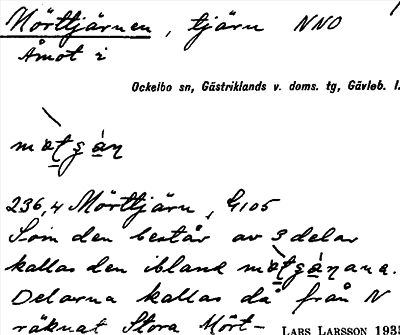 Mörttjärnen, tjärn NNO
Åmot i
Ockelbo sn, Gästriklands v. doms. tg, Gävleb. l.
236,4 Mörttjärn, G105
Som den består av 3 delar
kallas den ibland
Delarna kallas då från N
räknat Stora Mört-
LARS LARSSON 193